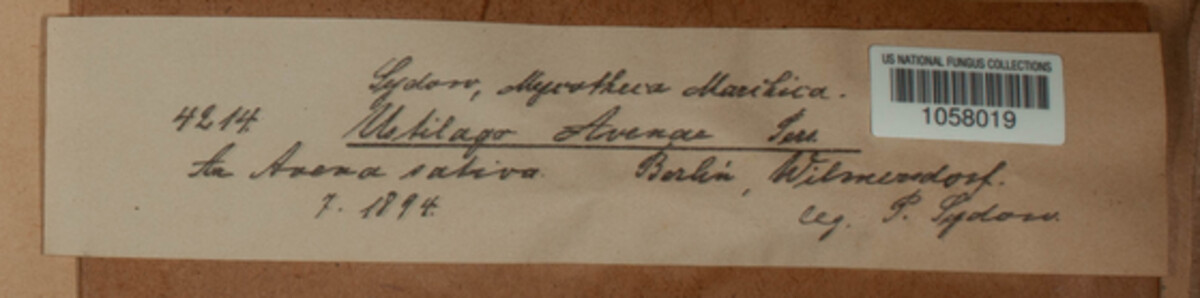 Sydow, Mycotheca Marchica.
4214. Ustilago Avenae Pers.
An Avena sativa. Berlin, Wilmersdorf.
7. 1894. leg. P. Sydow.
US NATIONAL FUNGUS COLLECTIONS
1058019